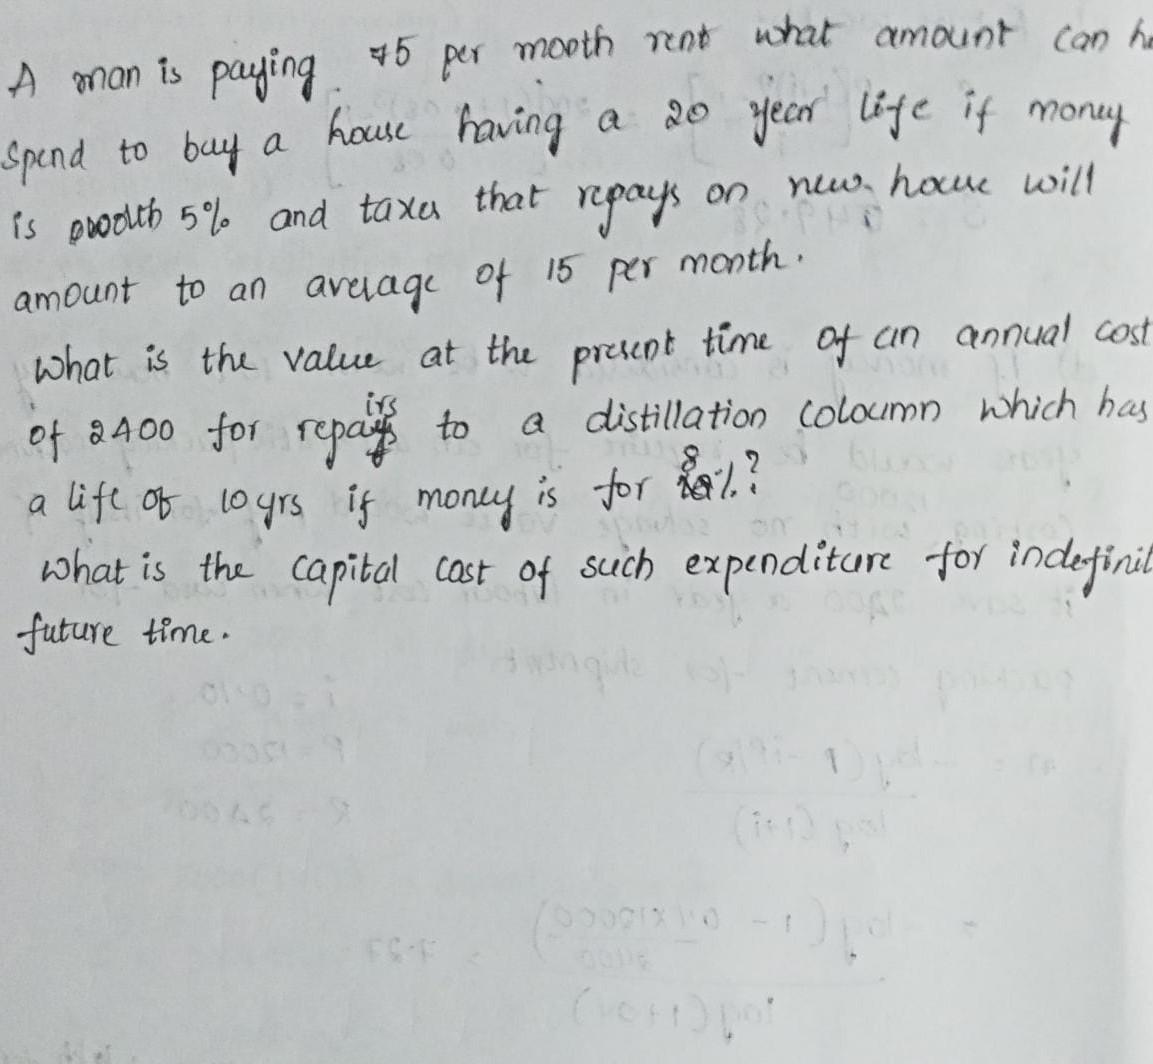 A man is paying 75 per month rent what amount can he
spend to buy a house having a 20 year life if money
is worth 5% and taxes that repays on new house will
amount to an average of 15 per month.
what is the value at the present time of an annual cost
of 2400 for repairs to a distillation coloumn which has
a life of 10 yrs if money is for 8%?
what is the capital cost of such expenditure for indefinit
future time.